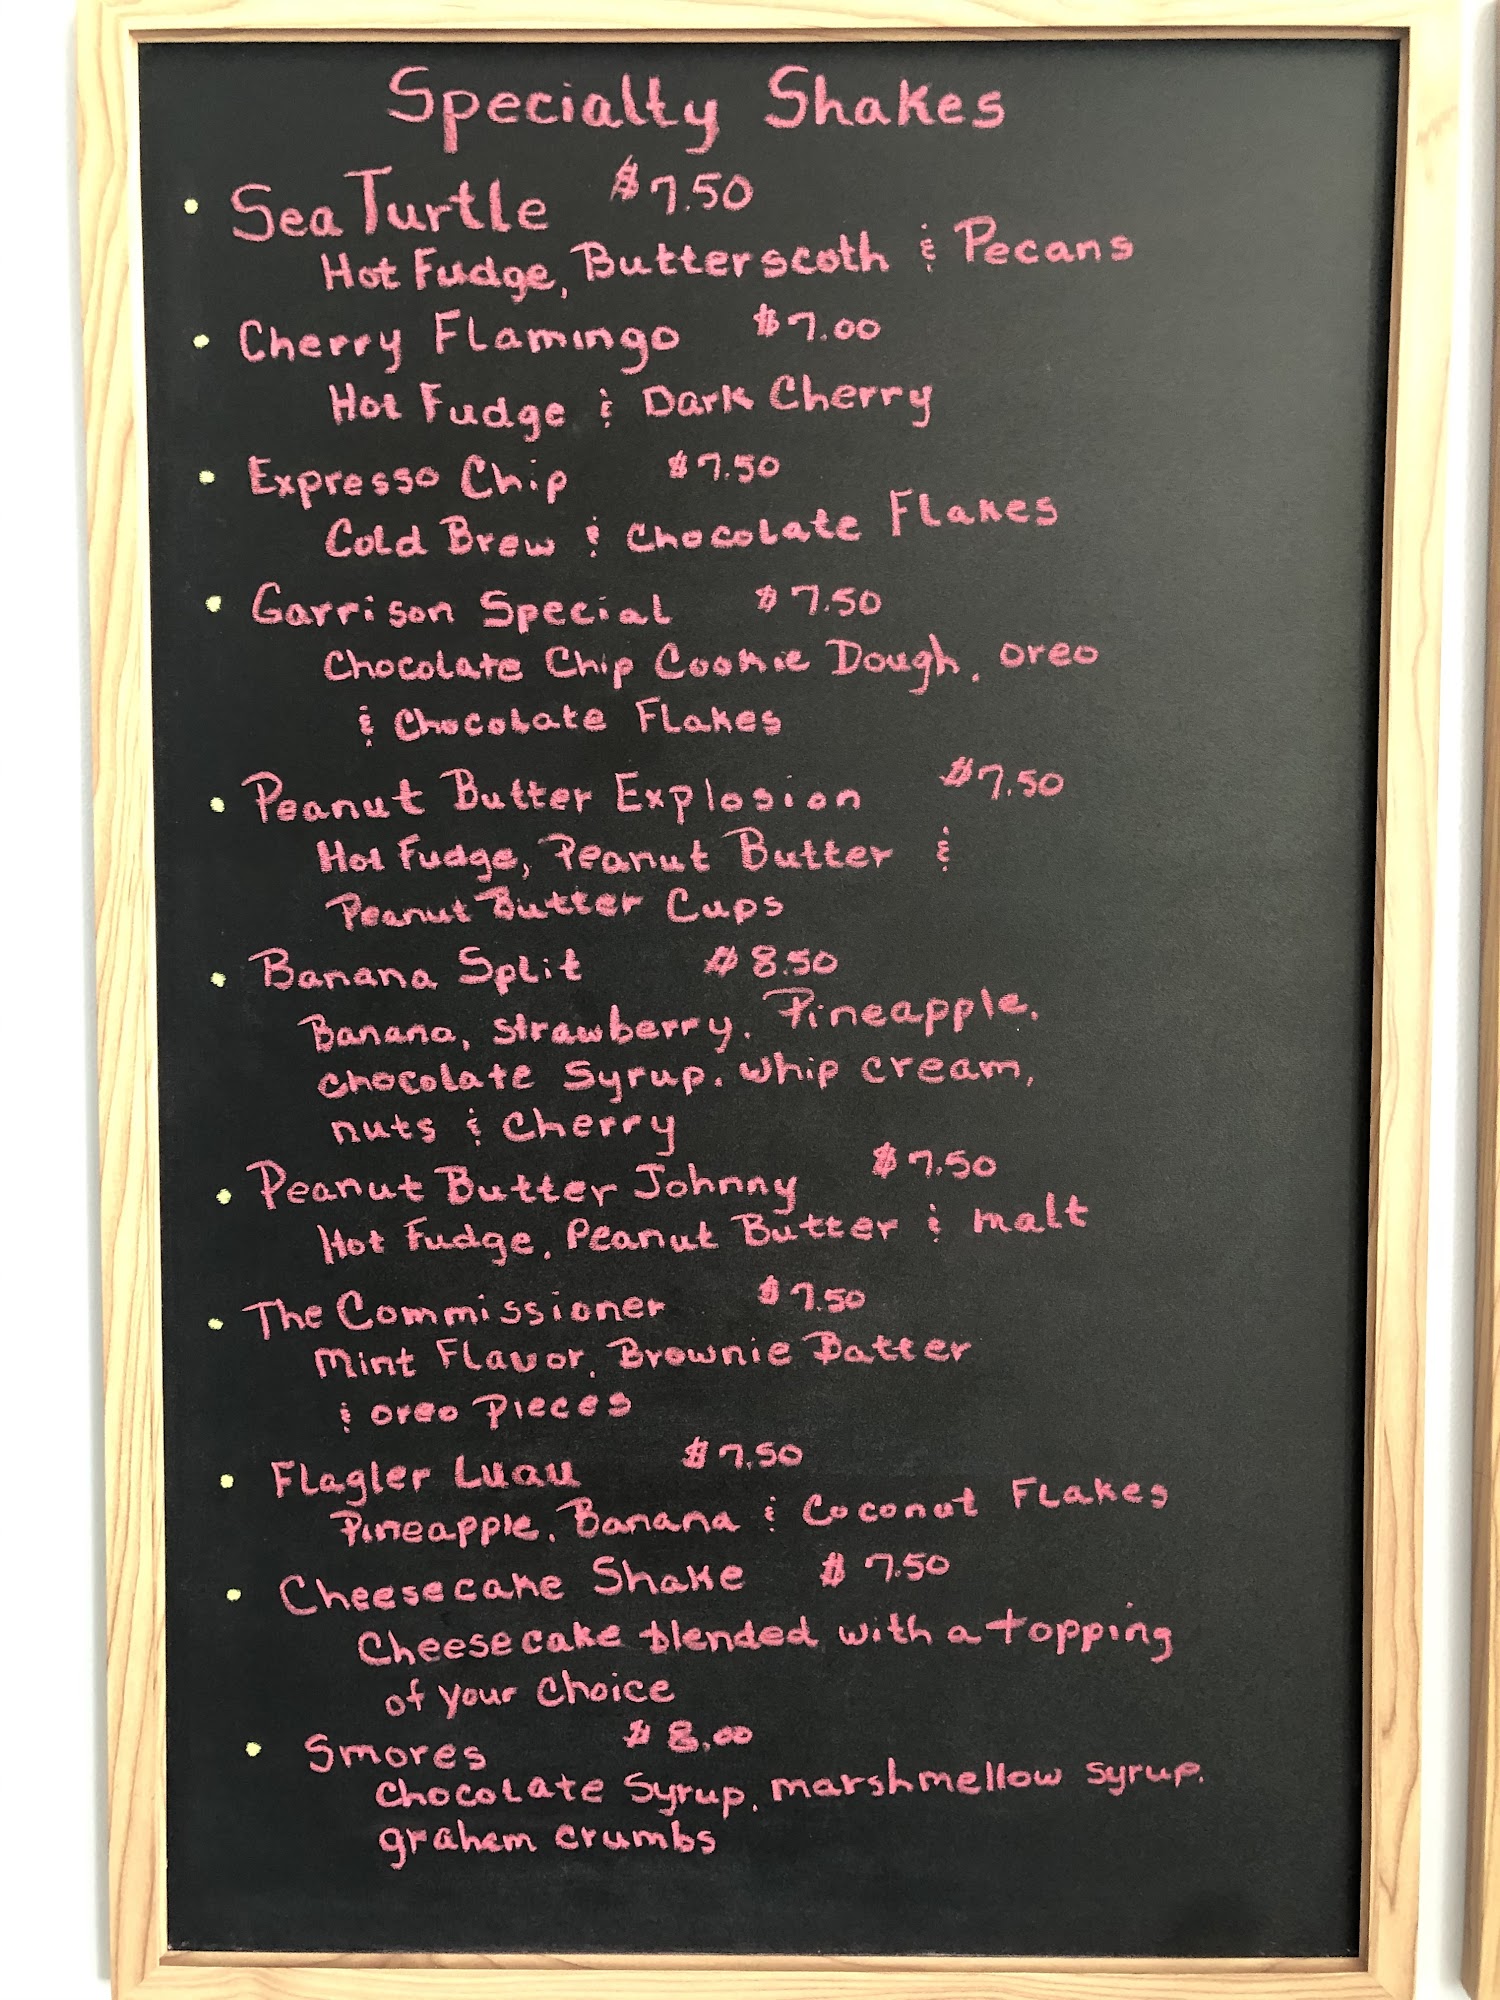 Specialty Shakes
• Sea Turtle $7.50
Hot Fudge, Butterscoth & Pecans
• Cherry Flamingo $7.00
Hot Fudge & Dark Cherry
• Expresso Chip $7.50
Cold Brew & Chocolate Flakes
• Garrison Special $7.50
Chocolate Chip Cookie Dough, oreo
& Chocolate Flakes
• Peanut Butter Explosion $7.50
Hot Fudge, Peanut Butter &
Peanut Butter Cups
• Banana Split $8.50
Banana, strawberry, Pineapple,
chocolate Syrup, whip cream,
nuts & Cherry
• Peanut Butter Johnny $7.50
Hot Fudge, Peanut Butter & malt
• The Commissioner $7.50
Mint Flavor, Brownie Batter
& oreo Pieces
• Flagler Luau $7.50
Pineapple, Banana & Coconut Flakes
• Cheesecake Shake $7.50
Cheesecake blended with a topping
of your choice
• Smores $8.00
Chocolate Syrup, marshmellow syrup,
graham crumbs